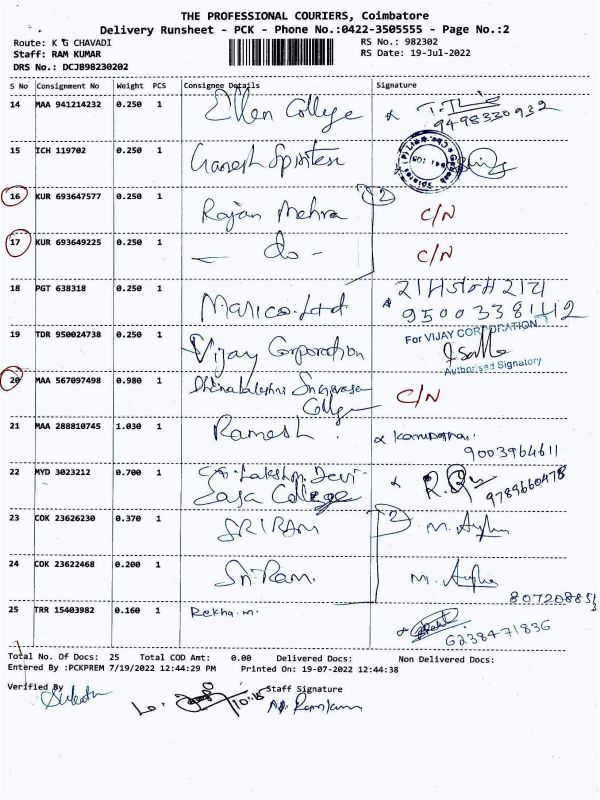 THE PROFESSIONAL COURIERS, Coimbatore
Delivery Runsheet - PCK - Phone No.:0422-3505555 - Page No.:2
Route: K G CHAVADI RS No.: 982302
Staff: RAM KUMAR RS Date: 19-Jul-2022
DRS No.: DCJB98230202
S No Consignment No Weight PCS Consignee Details Signature
14 MAA 941214232 0.250 1 Ellen College 9498330932
15 ICH 119702 0.250 1 Ganesh
16 KUR 693647577 0.250 1 Rajan Mehra 2 C/N
17 KUR 693649225 0.250 1 - do - C/N
18 PGT 638318 0.250 1 Marico Ltd 9500338142
19 TDR 950024738 0.250 1 Vijay Corporation For VIJAY CORPORATION
Authorised Signatory
20 MAA 567097498 0.980 1 College C/N
21 MAA 288810745 1.030 1 Ramesh. 9003964611
22 MYD 3023212 0.700 1 Lakshmi Devi 9789660478
College
23 COK 23626230 0.370 1 SRIRAM 2
24 COK 23622468 0.200 1 Sri Ram. 8072088513
25 TRR 15403982 0.160 1 Rekha.m. 6238471836
Total No. Of Docs: 25 Total COD Amt: 0.00 Delivered Docs: Non Delivered Docs:
Entered By :PCKPREM 7/19/2022 12:44:29 PM Printed On: 19-07-2022 12:44:38
Verified By Staff Signature